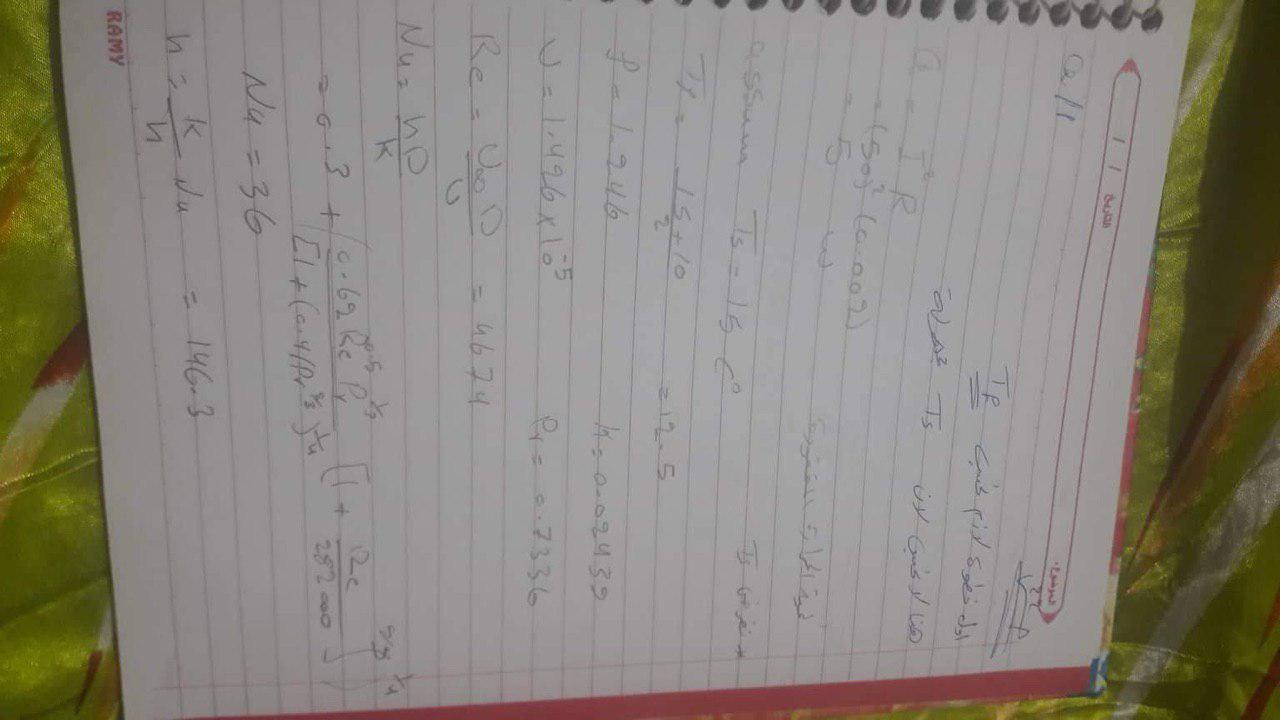 التاريخ / /
الموضوع:
Q/1
اول خطوة لازم نحسب Tf
هنا لا نحسب لان Ts مجهولة
Q = I² R
= (50)² (0.002)
= 5 w
كمية الحرارة المفقودة
* نفرض Ts
assum Ts = 15 C°
Tf = 15+10 / 2 = 12.5
ρ = 1.246 k = 0.02439
υ = 1.426 × 10⁻⁵ Pr = 0.7336
Re = U∞ D / υ = 4674
Nu = hD / k
= 0.3 + (0.62 Re^0.5 Pr^1/3 / [1 + (0.4/Pr^2/3)^1/4 [1 + Re / 282000]^5/8
Nu = 36
h = k / h Nu = 146.3
RAMY